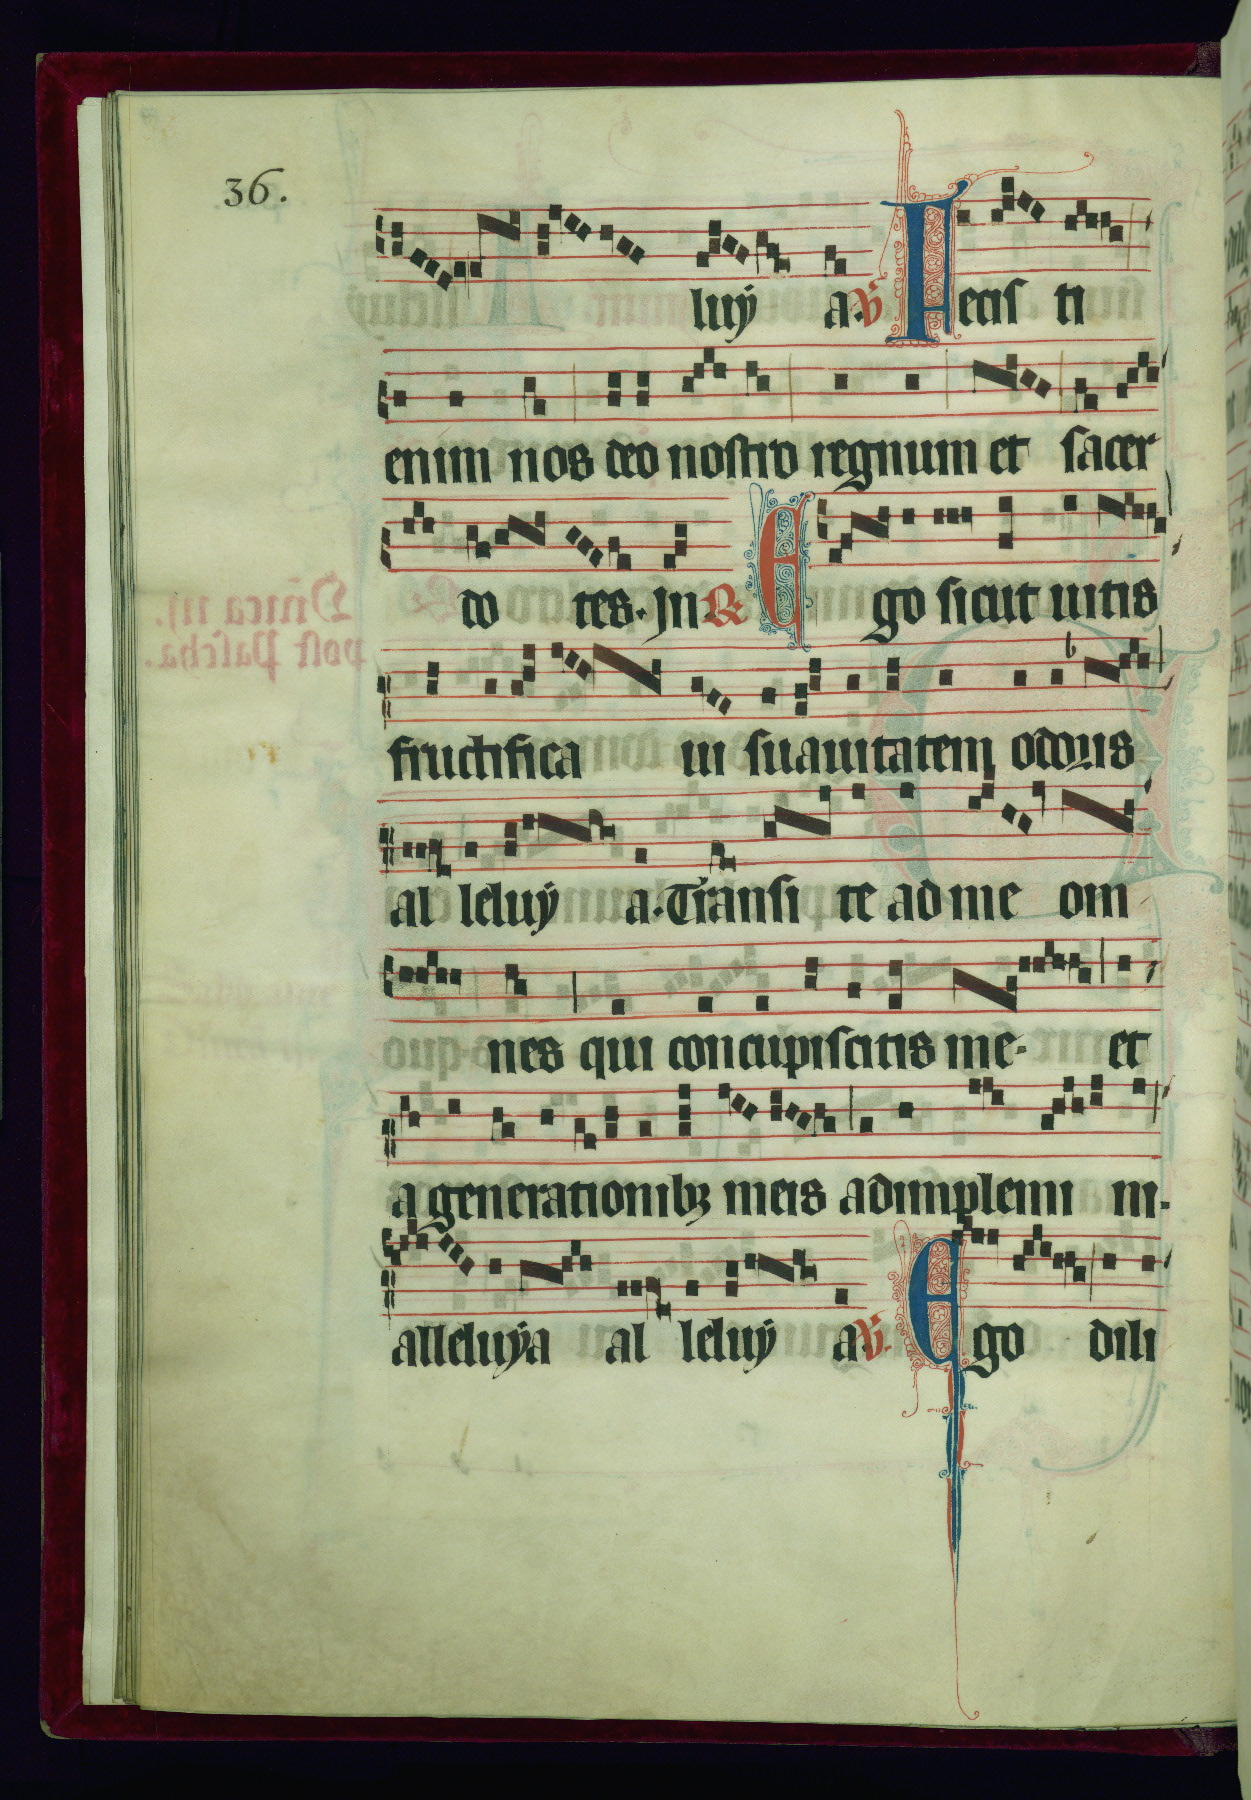 36.
luÿ a. V Fecis ti
enim nos deo nostro regnum et sacer
do tes. Jn R Ego sicut uitis
fructifica ui suauitatem odoris
al leluÿ a. Transi te ad me om
nes qui concupiscitis me. et
a generationibꝫ meis adimplemi ni.
alleluÿa al leluÿ a V. Ego dili